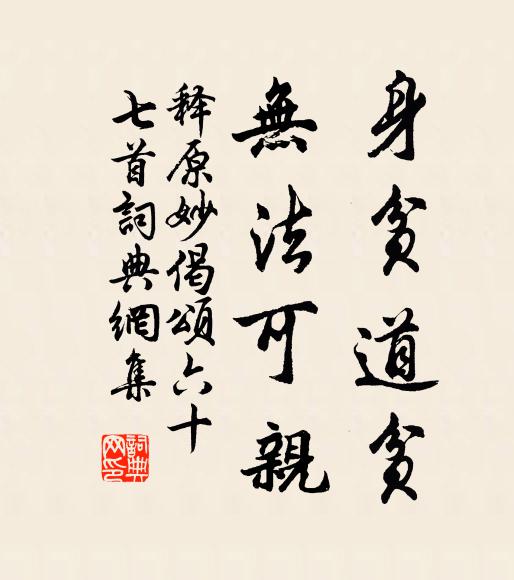 身貧道貧
無法可親
释原妙偈頌六十
七首詞典網集
詞典網印